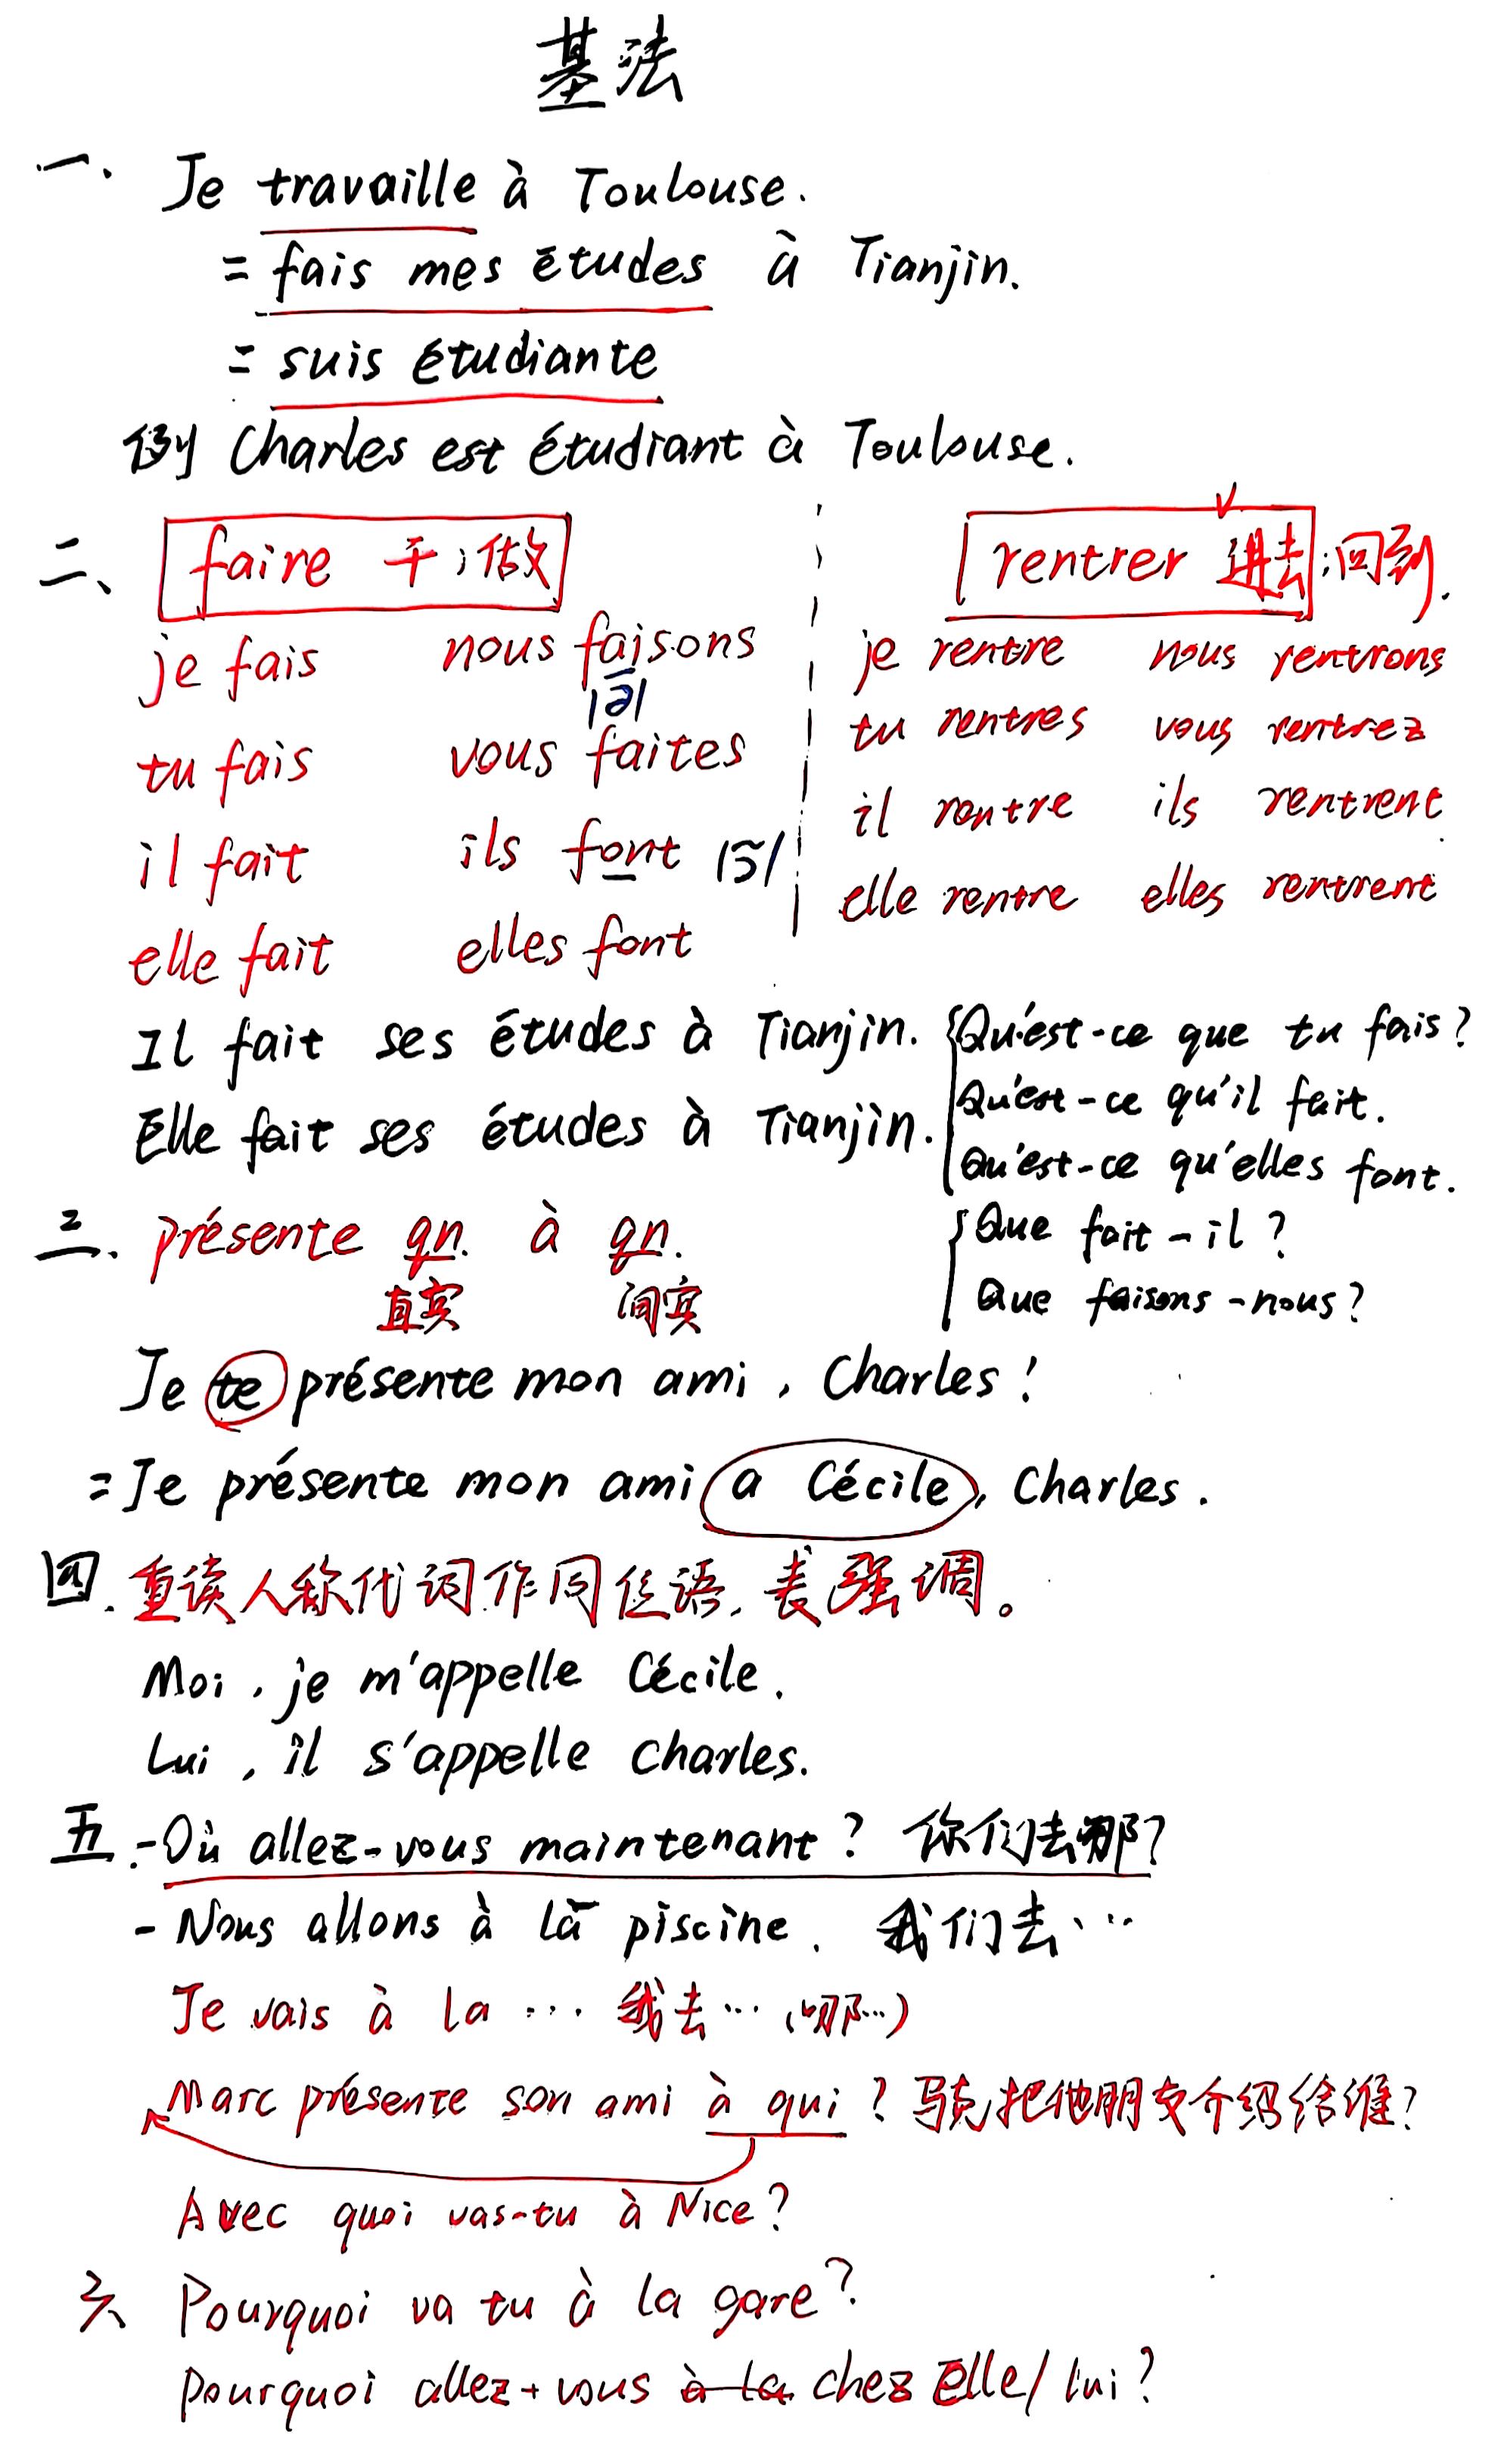 基法
一、 Je travaille à Toulouse.
= fais mes études à Tianjin.
= suis étudiante
例 Charles est étudiant à Toulouse.
二、 faire 干;做
je fais nous faisons
|ə|
tu fais vous faites
il fait ils font /ɔ̃/
elle fait elles font
rentrer 进去;回到.
je rentre nous rentrons
tu rentres vous rentrez
il rentre ils rentrent
elle rentre elles rentrent
Il fait ses études à Tianjin.
Elle fait ses études à Tianjin.
Qu'est-ce que tu fais?
Qu'est-ce qu'il fait.
Qu'est-ce qu'elles font.
Que fait-il?
Que faisons-nous?
三、 présente qn. à qn.
直宾 间宾
Je te présente mon ami, Charles!
= Je présente mon ami a Cécile, Charles.
四、重读人称代词作同位语,表强调。
Moi, je m'appelle Cécile.
Lui, il s'appelle Charles.
五、-Où allez-vous maintenant? 你们去哪?
- Nous allons à la piscine. 我们去…
Je vais à la … 我去…(哪…)
Marc présente son ami à qui? 马克把他朋友介绍给谁?
Avec quoi vas-tu à Nice?
六 Pourquoi va tu à la gare?
Pourquoi allez-vous à la chez Elle/lui?